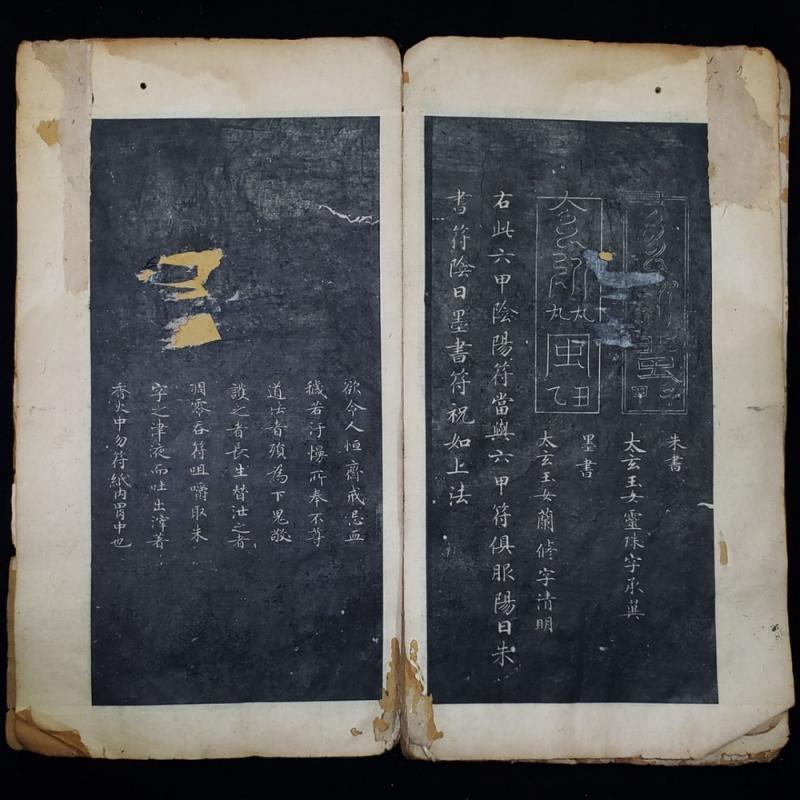 朱書
太玄玉女靈珠字承翼
墨書
太玄玉女蘭修字清明
右此六甲陰陽符當與六甲符俱服陽日朱
書符陰日墨書符祝如上法
欲令人恒齋戒忌血
穢若汙慢所奉不尊
道法者殞為下鬼敬
護之者長生替泄之者
凋零吞符咀嚼取朱
字之津液而吐出滓著
香火中勿符紙內胃中也